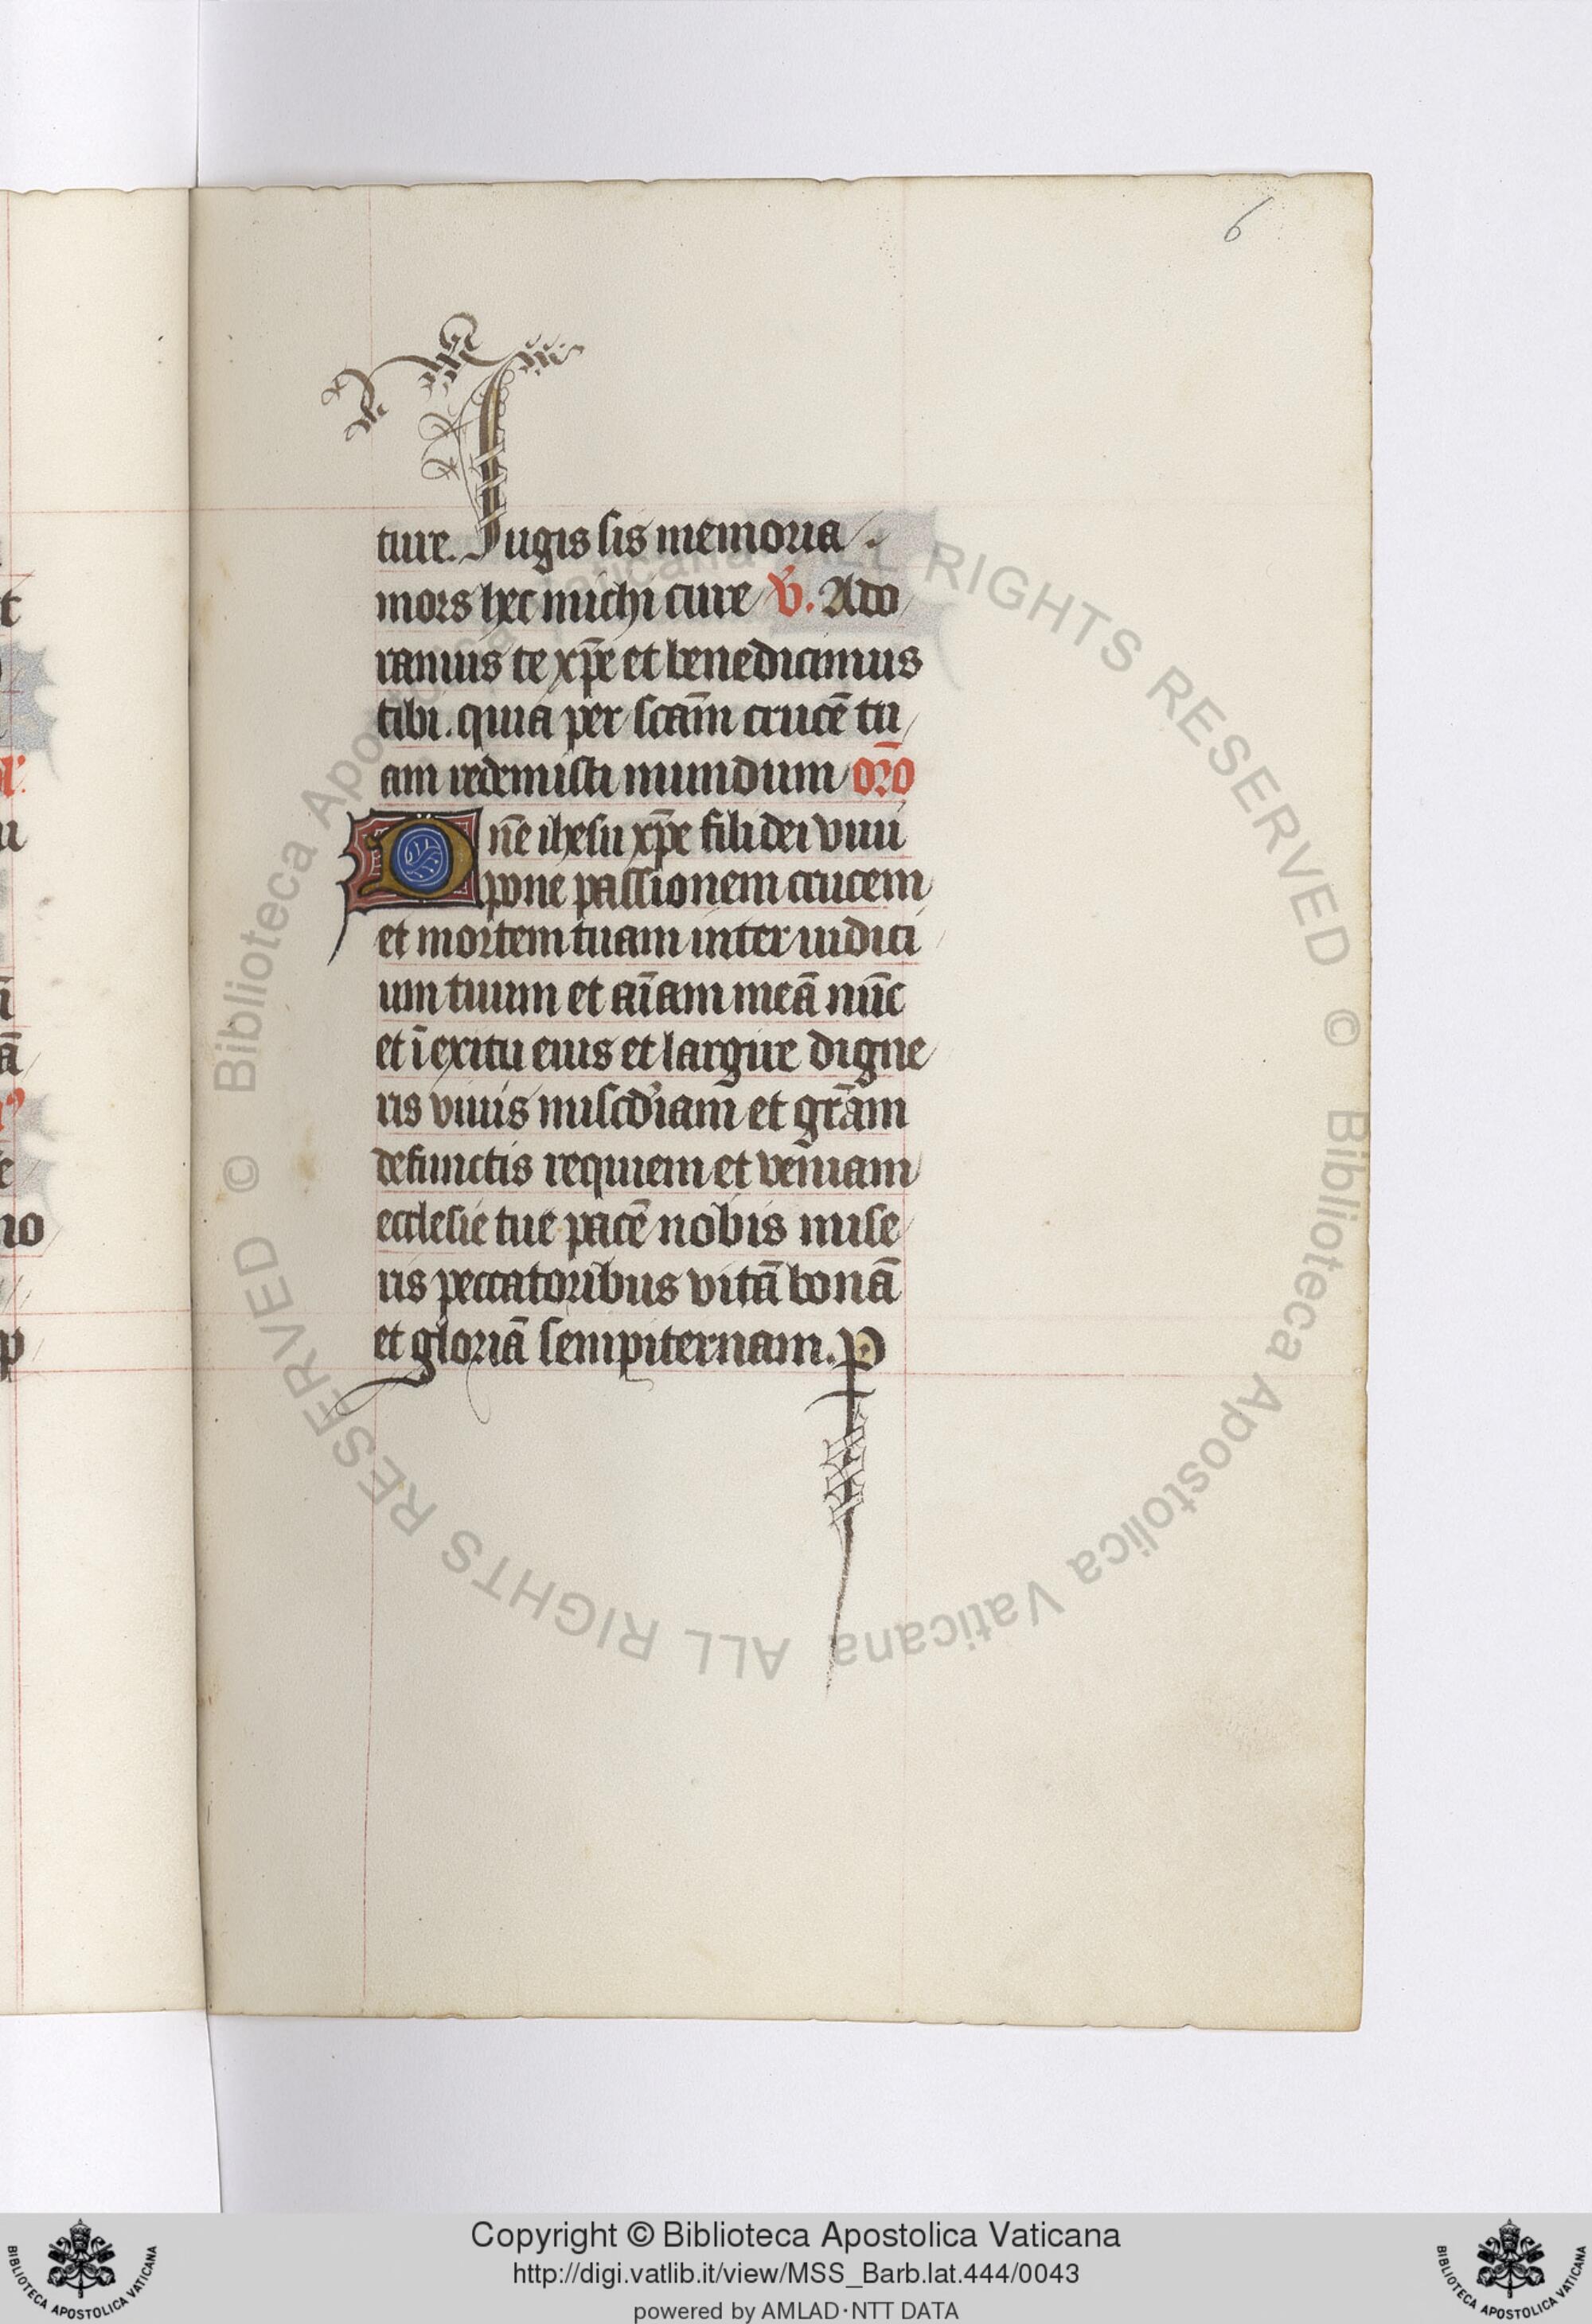 6
ture. Jugis sis memoria.
mors hec michi cure V̄. Ado
ramus te xp̄e et benedicimus
tibi. quia per scām crucē tu
am redemisti mundum or̄o
Dn̄e ihesu xp̄e fili dei viui
pone passionem crucem
et mortem tuam inter iudici
um tuum et aīam meā nūc
et ī exitu eius et largire digne
ris viuis miscd'iam et gr̄am
defunctis requiem et veniam
ecclesie tue pacē nobis mise
ris peccatoribus vitā bonā
et gloriā sempiternam. P
© Biblioteca Apostolica Vaticana ALL RIGHTS RESERVED © Biblioteca Apostolica Vaticana ALL RIGHTS RESERVED
Copyright © Biblioteca Apostolica Vaticana
http://digi.vatlib.it/view/MSS_Barb.lat.444/0043
powered by AMLAD·NTT DATA
BIBLIOTECA APOSTOLICA VATICANA
BIBLIOTECA APOSTOLICA VATICANA